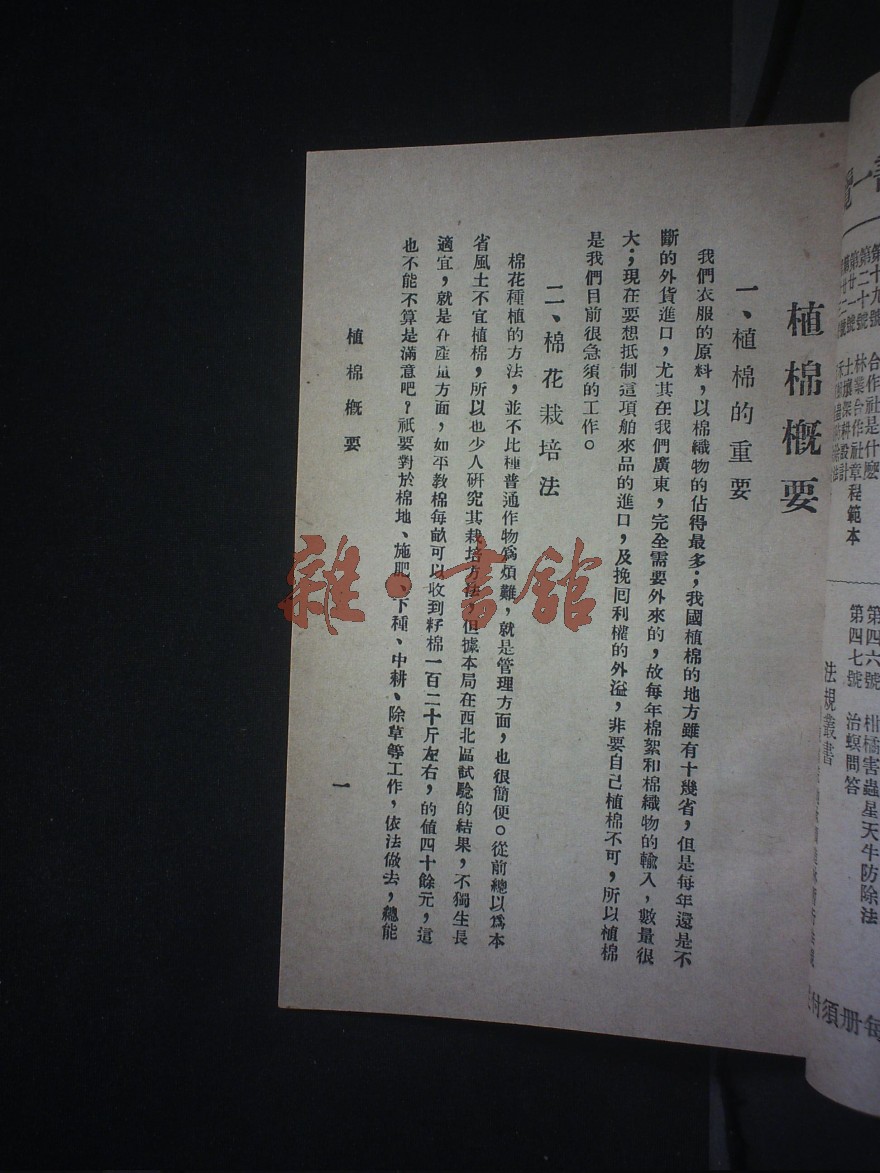 第十九號　合作社是什麼
第二十號　林業合作社章程範本
第廿一號　土壤深耕設計
第四六號　柑橘害蟲星天牛防除法
第四七號　治螟問答
法規叢書
植棉概要
一、植棉的重要
我們衣服的原料，以棉織物的佔得最多；我國植棉的地方雖有十幾省，但是每年還是不
斷的外貨進口，尤其在我們廣東，完全需要外來的，故每年棉絮和棉織物的輸入，數量很
大；現在要想抵制這項舶來品的進口，及挽囘利權的外溢，非要自己植棉不可，所以植棉
是我們目前很急須的工作。
二、棉花栽培法
棉花種植的方法，並不比種普通作物爲煩難，就是管理方面，也很簡便。從前總以爲本
省風土不宜植棉，所以也少人研究其栽培方法，但據本局在西北區試驗的結果，不獨生長
適宜，就是在產量方面，如平教棉每畝可以收到籽棉一百二十斤左右，的値四十餘元，這
也不能不算是滿意吧？祇要對於棉地、施肥、下種、中耕、除草等工作，依法做去，總能
植棉概要
一
雜·書館